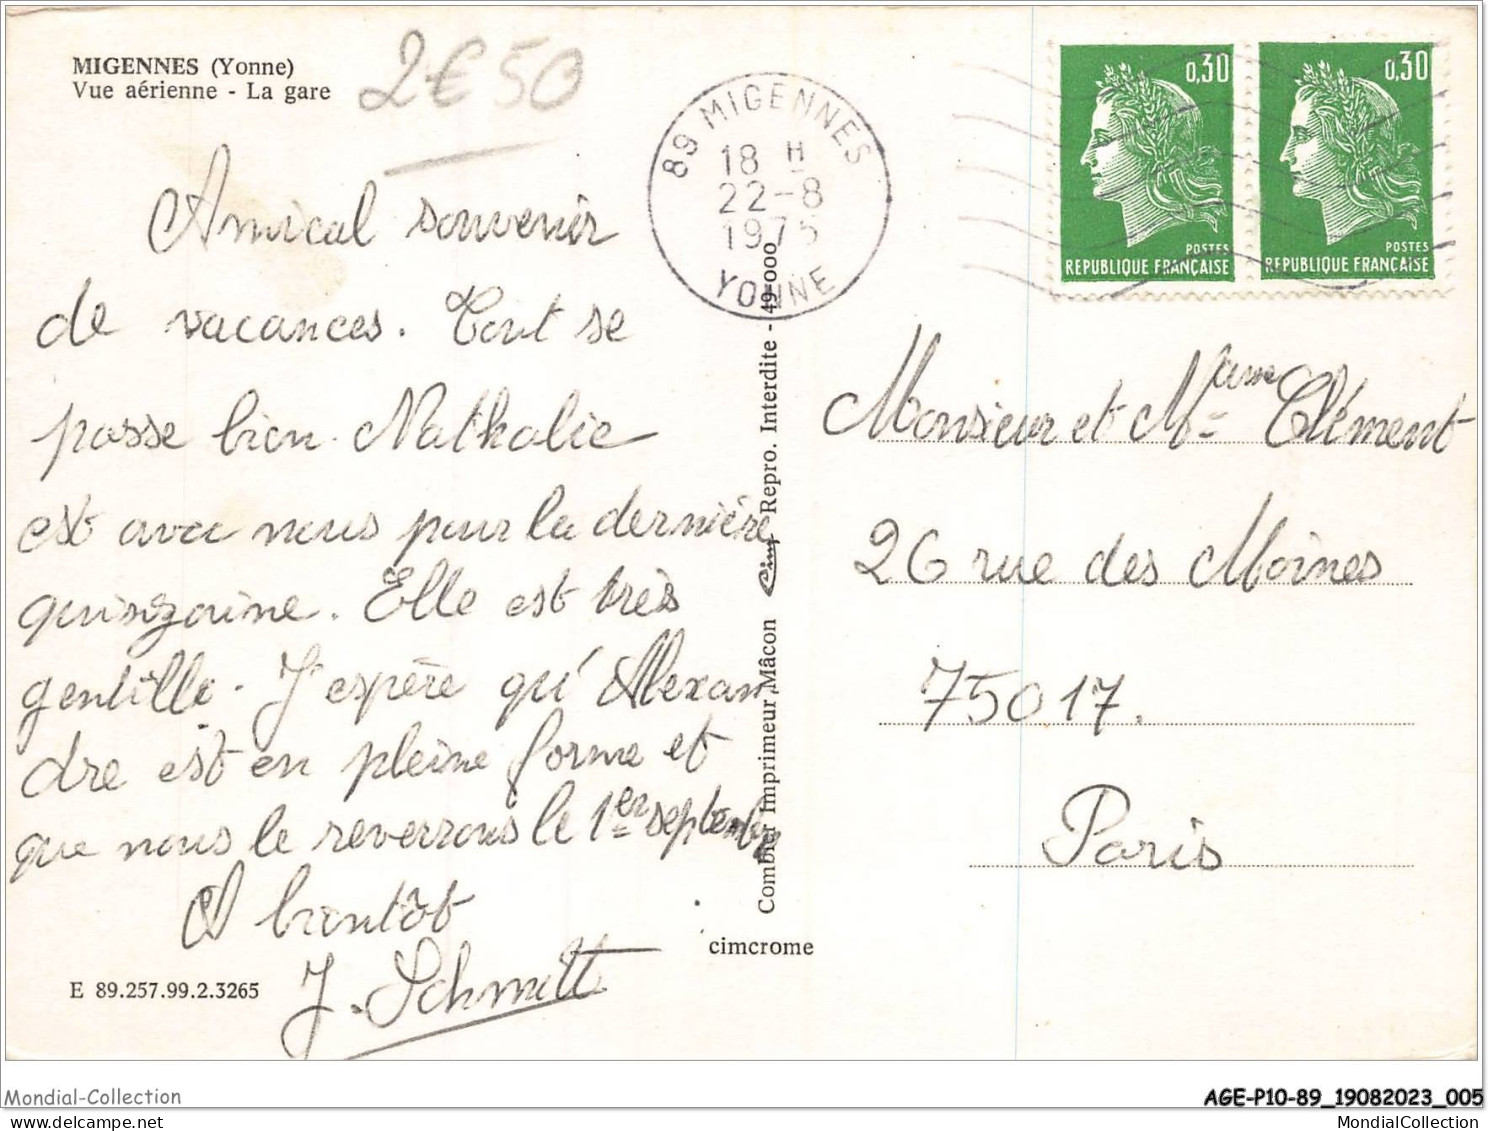 MIGENNES (Yonne)
Vue aérienne - La gare
2€50
Amical souvenir
de vacances. Tout se
passe bien. Nathalie
est avec nous pour la dernière
quinzaine. Elle est très
gentille. J'espère qu'Alexan
dre est en pleine forme et
que nous le reverrons le 1er septembre
A bientôt
J. Schmitt
E 89.257.99.2.3265
89 MIGENNES
18 H
22-8
1975
YONNE
Combier Imprimeur Mâcon Cim Repro. Interdite - 49 000
cimcrome
0,30
POSTES
REPUBLIQUE FRANÇAISE
0,30
POSTES
REPUBLIQUE FRANÇAISE
Monsieur et Mame Clément
26 rue des Moines
75017.
Paris
Mondial-Collection
AGE-P10-89_19082023_005
delcampe.net
MondialCollection